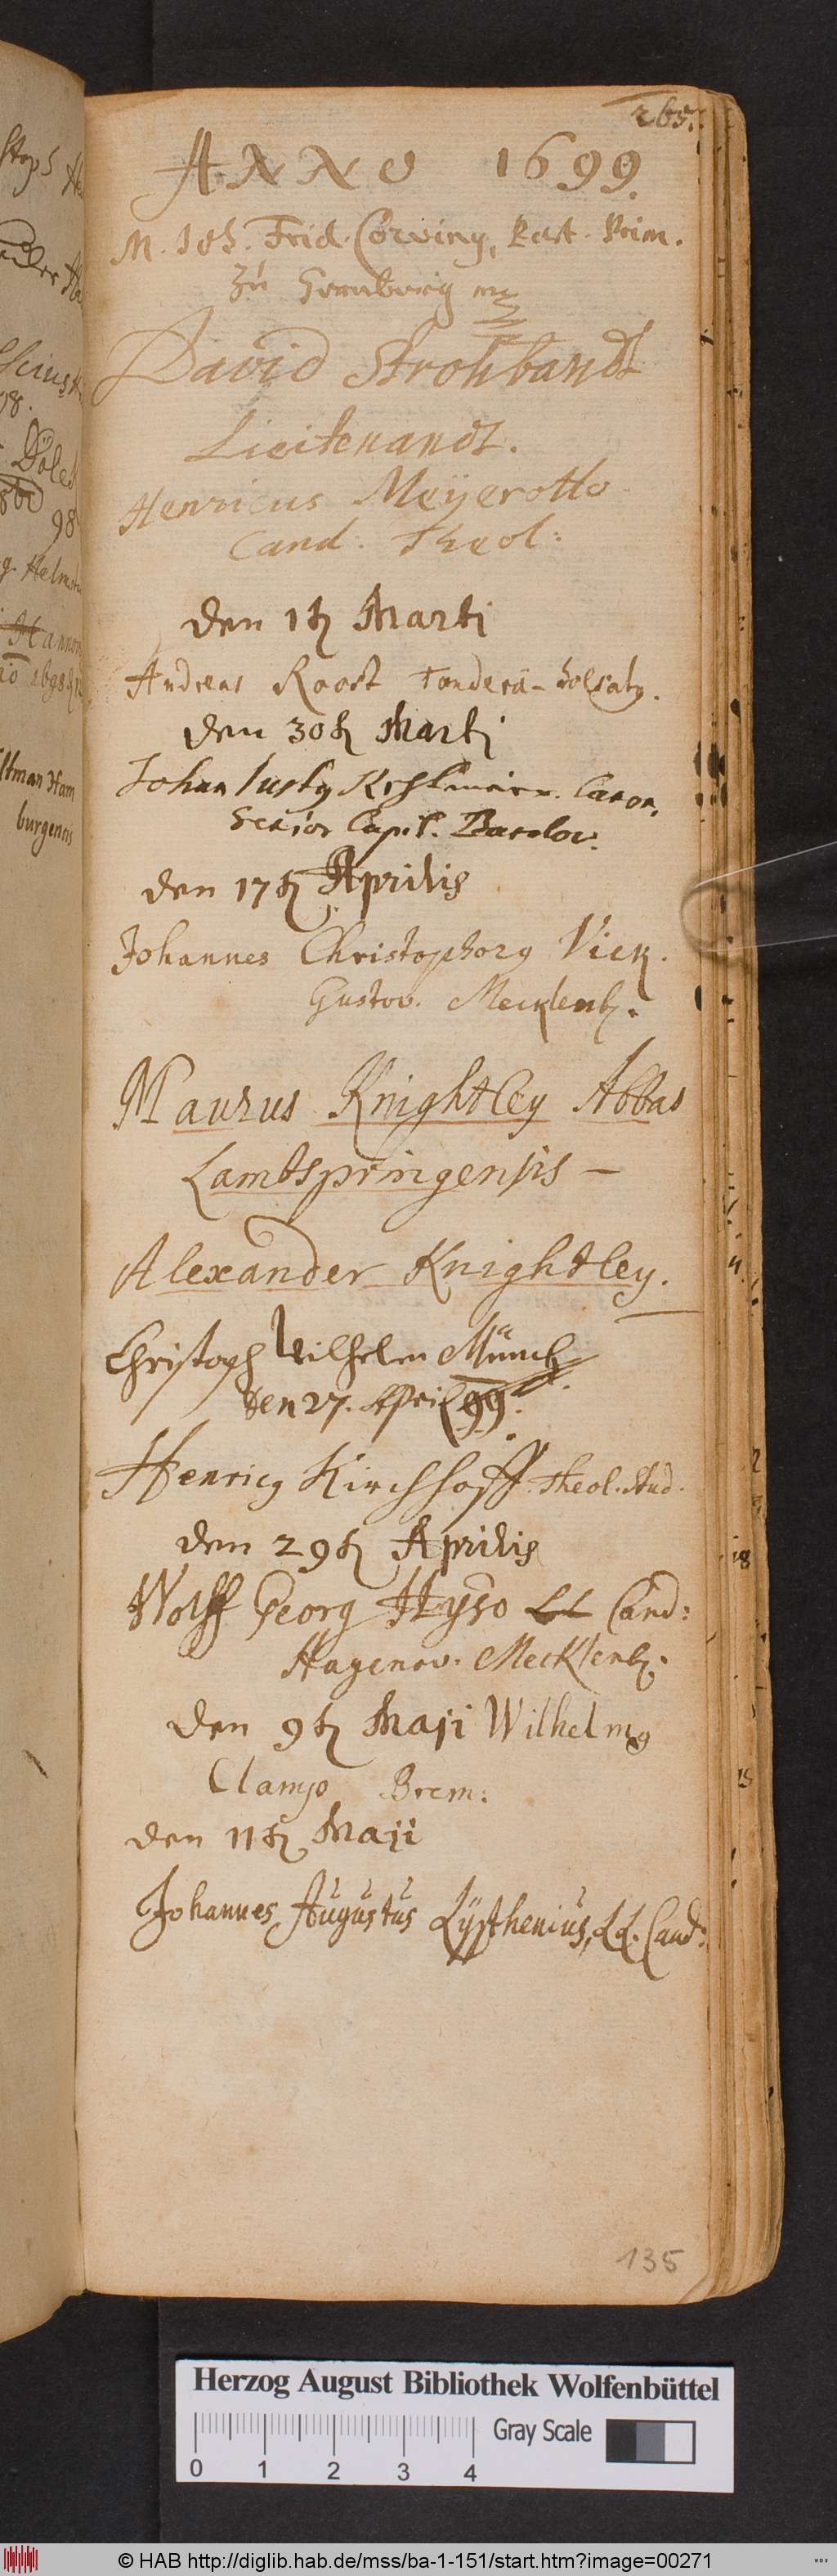 265.
ANNO 1699.
M. Joh. Frid. Corvinus, Past. Prim.
zu Hornburg
David Strohbandt
Lieitenandt.
Henricus Meÿerotto
Cand. Theol:
den 1t Marti
Andreas Roost Tonderâ-Holsatus.
den 30t Marti
Johan Justus Canon.
Senior Capit. Bardov.
den 17t Aprilis
Johannes Christophorus Vick.
Gustov. Mecklenb.
Maurus Knightley Abbas
Lambspringensis –
Alexander Knightley.
Christoph Wilhelm Münch
den 27. April 99.
Henricus Kirchhoff. Theol. Stud.
den 29t Aprilis
Wolff Georg LL Cand:
Hagenov. Mecklenb.
den 9t Maji Wilhelmus
Clampo Brem:
den 11t Maji
Johannes Augustus Lÿsthenius, LL. Cand:
135
98
ltman Ham
burgensis
Herzog August Bibliothek Wolfenbüttel
Gray Scale
0 1 2 3 4
© HAB http://diglib.hab.de/mss/ba-1-151/start.htm?image=00271